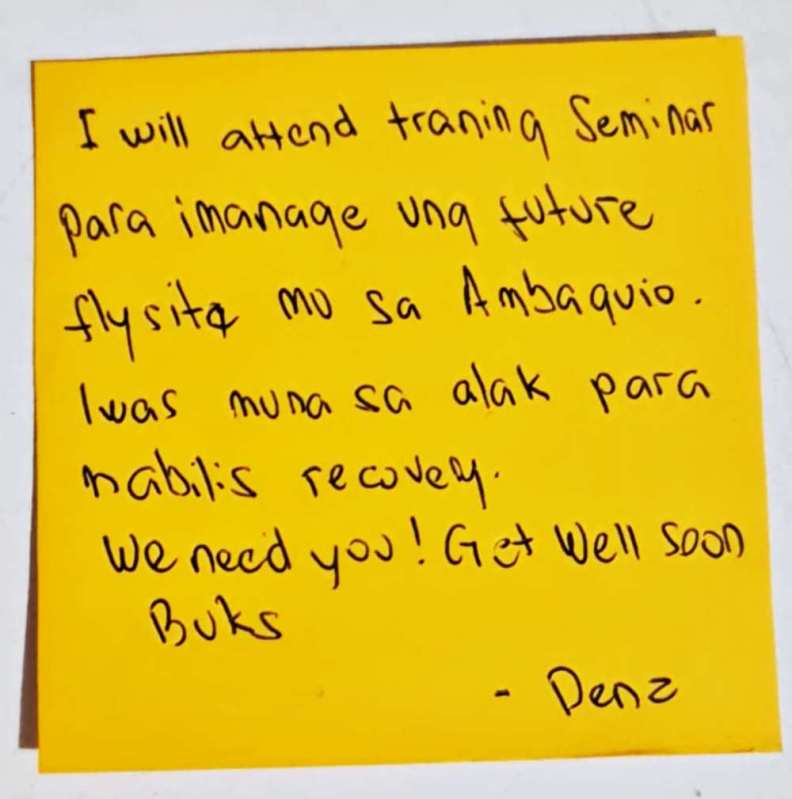 I will attend traning Seminar
para imanage ung future
flysite mo sa Ambaguio.
Iwas muna sa alak para
mabilis recovery.
We need you! Get Well Soon
Buks
- Denz